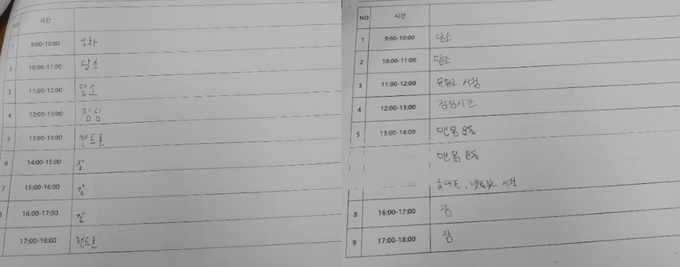 NO 시간
1 9:00-10:00 영화
2 10:00-11:00 담소
3 11:00-12:00 담소
4 12:00-13:00 점심
5 13:00-14:00 핸드폰
6 14:00-15:00 잠
7 15:00-16:00 잠
8 16:00-17:00 잠
17:00-18:00 핸드폰
NO 시간
1 9:00-10:00 담소
2 10:00-11:00 담소
3 11:00-12:00 유튜브 시청
4 12:00-13:00 점심시간
5 13:00-14:00 맨몸 운동
맨몸 운동
휴대폰, 넷플릭스 시청
8 16:00-17:00 잠
9 17:00-18:00 잠